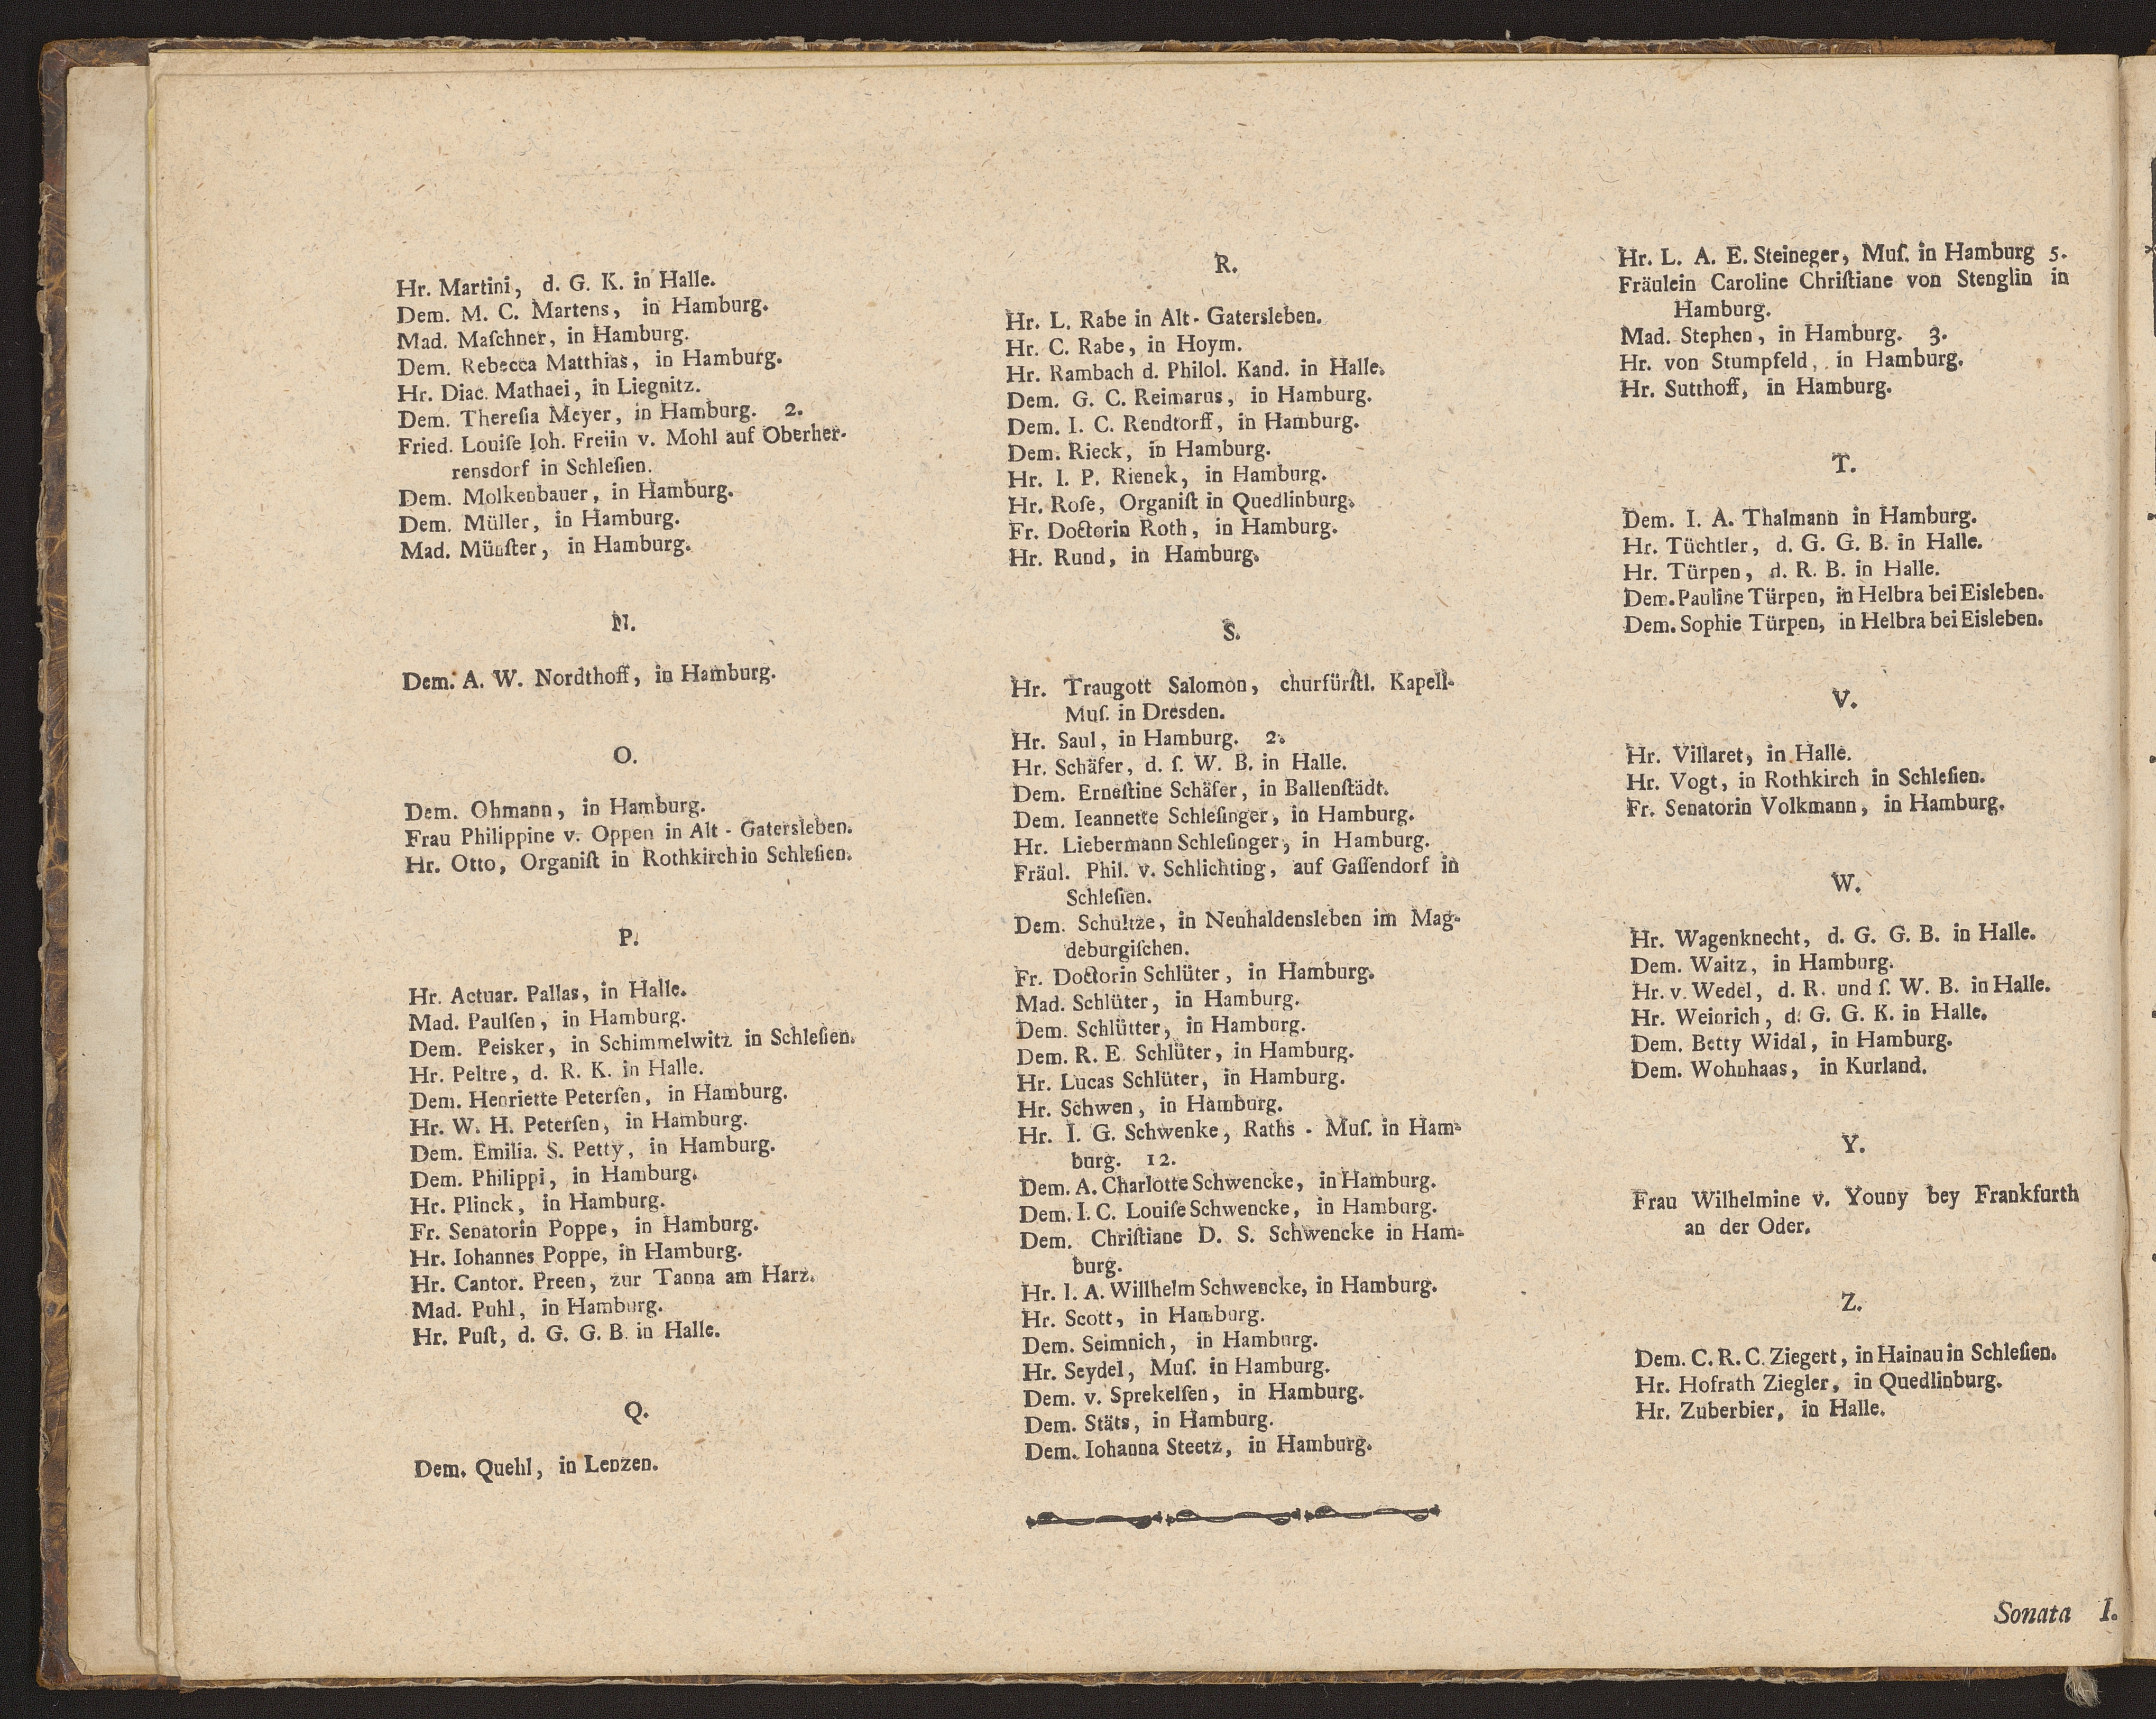 Hr. Martini, d. G. K. in Halle.
Dem. M. C. Martens, in Hamburg.
Mad. Maſchner, in Hamburg.
Dem. Rebecca Matthias, in Hamburg.
Hr. Diac. Mathaei, in Liegnitz.
Dem. Thereſia Meyer, in Hamburg. 2.
Fried. Louiſe Ioh. Freiin v. Mohl auf Oberher-
rensdorf in Schleſien.
Dem. Molkenbauer, in Hamburg.
Dem. Müller, in Hamburg.
Mad. Münſter, in Hamburg.
N.
Dem. A. W. Nordthoff, in Hamburg.
O.
Dem. Ohmann, in Hamburg.
Frau Philippine v. Oppen in Alt - Gatersleben.
Hr. Otto, Organiſt in Rothkirch in Schleſien.
P.
Hr. Actuar. Pallas, in Halle.
Mad. Paulſen, in Hamburg.
Dem. Peisker, in Schimmelwitz in Schleſien.
Hr. Peltre, d. R. K. in Halle.
Dem. Henriette Peterſen, in Hamburg.
Hr. W. H. Peterſen, in Hamburg.
Dem. Emilia. S. Petty, in Hamburg.
Dem. Philippi, in Hamburg.
Hr. Plinck, in Hamburg.
Fr. Senatorin Poppe, in Hamburg.
Hr. Iohannes Poppe, in Hamburg.
Hr. Cantor. Preen, zur Tanna am Harz.
Mad. Puhl, in Hamburg.
Hr. Puſt, d. G. G. B. in Halle.
Q.
Dem. Quehl, in Lenzen.
R.
Hr. L. Rabe in Alt - Gatersleben.
Hr. C. Rabe, in Hoym.
Hr. Rambach d. Philol. Kand. in Halle.
Dem. G. C. Reimarus, in Hamburg.
Dem. I. C. Rendtorff, in Hamburg.
Dem. Rieck, in Hamburg.
Hr. I. P. Rienek, in Hamburg.
Hr. Roſe, Organiſt in Quedlinburg.
Fr. Doctorin Roth, in Hamburg.
Hr. Rund, in Hamburg.
S.
Hr. Traugott Salomon, churfürſtl. Kapell-
Muſ. in Dresden.
Hr. Saul, in Hamburg. 2.
Hr. Schäfer, d. ſ. W. B. in Halle.
Dem. Erneſtine Schäfer, in Ballenſtädt.
Dem. Ieannette Schleſinger, in Hamburg.
Hr. Liebermann Schleſinger, in Hamburg.
Fräul. Phil. v. Schlichting, auf Gaſſendorf in
Schleſien.
Dem. Schultze, in Neuhaldensleben im Mag-
deburgiſchen.
Fr. Doctorin Schlüter, in Hamburg.
Mad. Schlüter, in Hamburg.
Dem. Schlütter, in Hamburg.
Dem. R. E. Schlüter, in Hamburg.
Hr. Lucas Schlüter, in Hamburg.
Hr. Schwen, in Hamburg.
Hr. I. G. Schwenke, Raths - Muſ. in Ham-
burg. 12.
Dem. A. Charlotte Schwencke, in Hamburg.
Dem. I. C. Louiſe Schwencke, in Hamburg.
Dem. Chriſtiane D. S. Schwencke in Ham-
burg.
Hr. I. A. Willhelm Schwencke, in Hamburg.
Hr. Scott, in Hamburg.
Dem. Seimnich, in Hamburg.
Hr. Seydel, Muſ. in Hamburg.
Dem. v. Sprekelſen, in Hamburg.
Dem. Stäts, in Hamburg.
Dem. Iohanna Steetz, in Hamburg.
Hr. L. A. E. Steineger, Muſ. in Hamburg 5.
Fräulein Caroline Chriſtiane von Stenglin in
Hamburg.
Mad. Stephen, in Hamburg. 3.
Hr. von Stumpfeld, in Hamburg.
Hr. Sutthoff, in Hamburg.
T.
Dem. I. A. Thalmann in Hamburg.
Hr. Tüchtler, d. G. G. B. in Halle.
Hr. Türpen, d. R. B. in Halle.
Dem. Pauline Türpen, in Helbra bei Eisleben.
Dem. Sophie Türpen, in Helbra bei Eisleben.
V.
Hr. Villaret, in Halle.
Hr. Vogt, in Rothkirch in Schleſien.
Fr. Senatorin Volkmann, in Hamburg.
W.
Hr. Wagenknecht, d. G. G. B. in Halle.
Dem. Waitz, in Hamburg.
Hr. v. Wedel, d. R. und ſ. W. B. in Halle.
Hr. Weinrich, d. G. G. K. in Halle.
Dem. Betty Widal, in Hamburg.
Dem. Wohnhaas, in Kurland.
Y.
Frau Wilhelmine v. Youny bey Frankfurth
an der Oder.
Z.
Dem. C. R. C. Ziegert, in Hainau in Schleſien.
Hr. Hofrath Ziegler, in Quedlinburg.
Hr. Zuberbier, in Halle.
Sonata I.